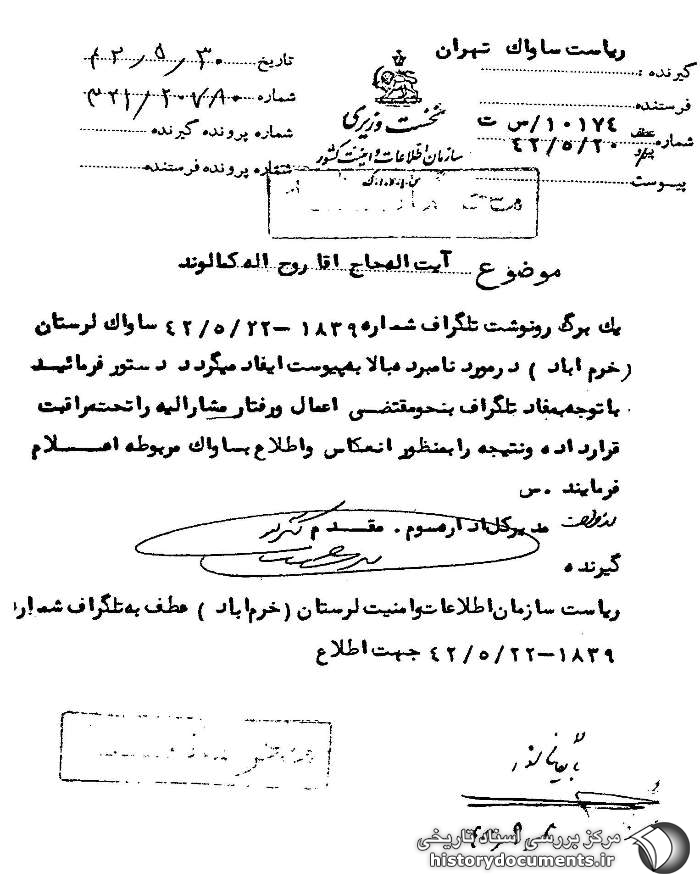 ریاست ساواک تهران
گیرنده :
فرستنده
شماره ۱۰۱۷۴/س ت
۴۲/۵/۲۰
پیوست
نخست وزیری
سازمان اطلاعات و امنیت کشور
تاریخ ۴۲/۵/۳۰
شماره ۳۲۱/۲۰۷۸۰
شماره پرونده گیرنده
شماره پرونده فرستنده
موضوع آیت اله حاج اقا روح اله کمالوند
یک برگ رونوشت تلگراف شماره ۱۸۳۹-۴۲/۵/۲۲ ساواک لرستان
(خرم اباد ) در مورد نامبرده بالا به پیوست ایفاد میگردد دستور فرمائید
با توجه بمفاد تلگراف بنحو مقتضی اعمال و رفتار مشارالیه را تحت مراقبت
قرار داده و نتیجه را بمنظور انعکاس و اطلاع بساواک مربوطه اعلام
فرمایند .س
مدیر کل اداره سوم . مقدم
گیرنده
ریاست سازمان اطلاعات و امنیت لرستان (خرم اباد ) عطف به تلگراف شماره
۱۸۳۹-۴۲/۵/۲۲ جهت اطلاع
بایگانی شود
مرکز بررسی اسناد تاریخی
historydocuments.ir